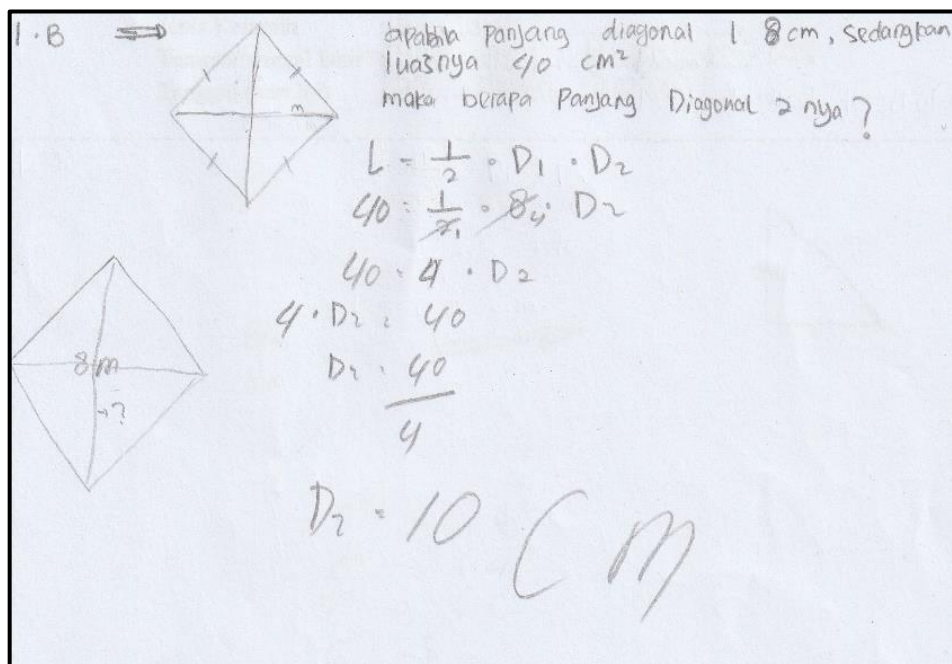 1.B ⇒
apabila panjang diagonal 1 8 cm, sedangkan
luasnya 40 cm²
maka berapa Panjang Diagonal 2 nya?
m
L = 1/2 · D₁ · D₂
40 = 1/2₁ · 8₄ · D₂
40 = 4 · D₂
4 · D₂ = 40
D₂ = 40/4
D₂ = 10 cm
8 m
→?